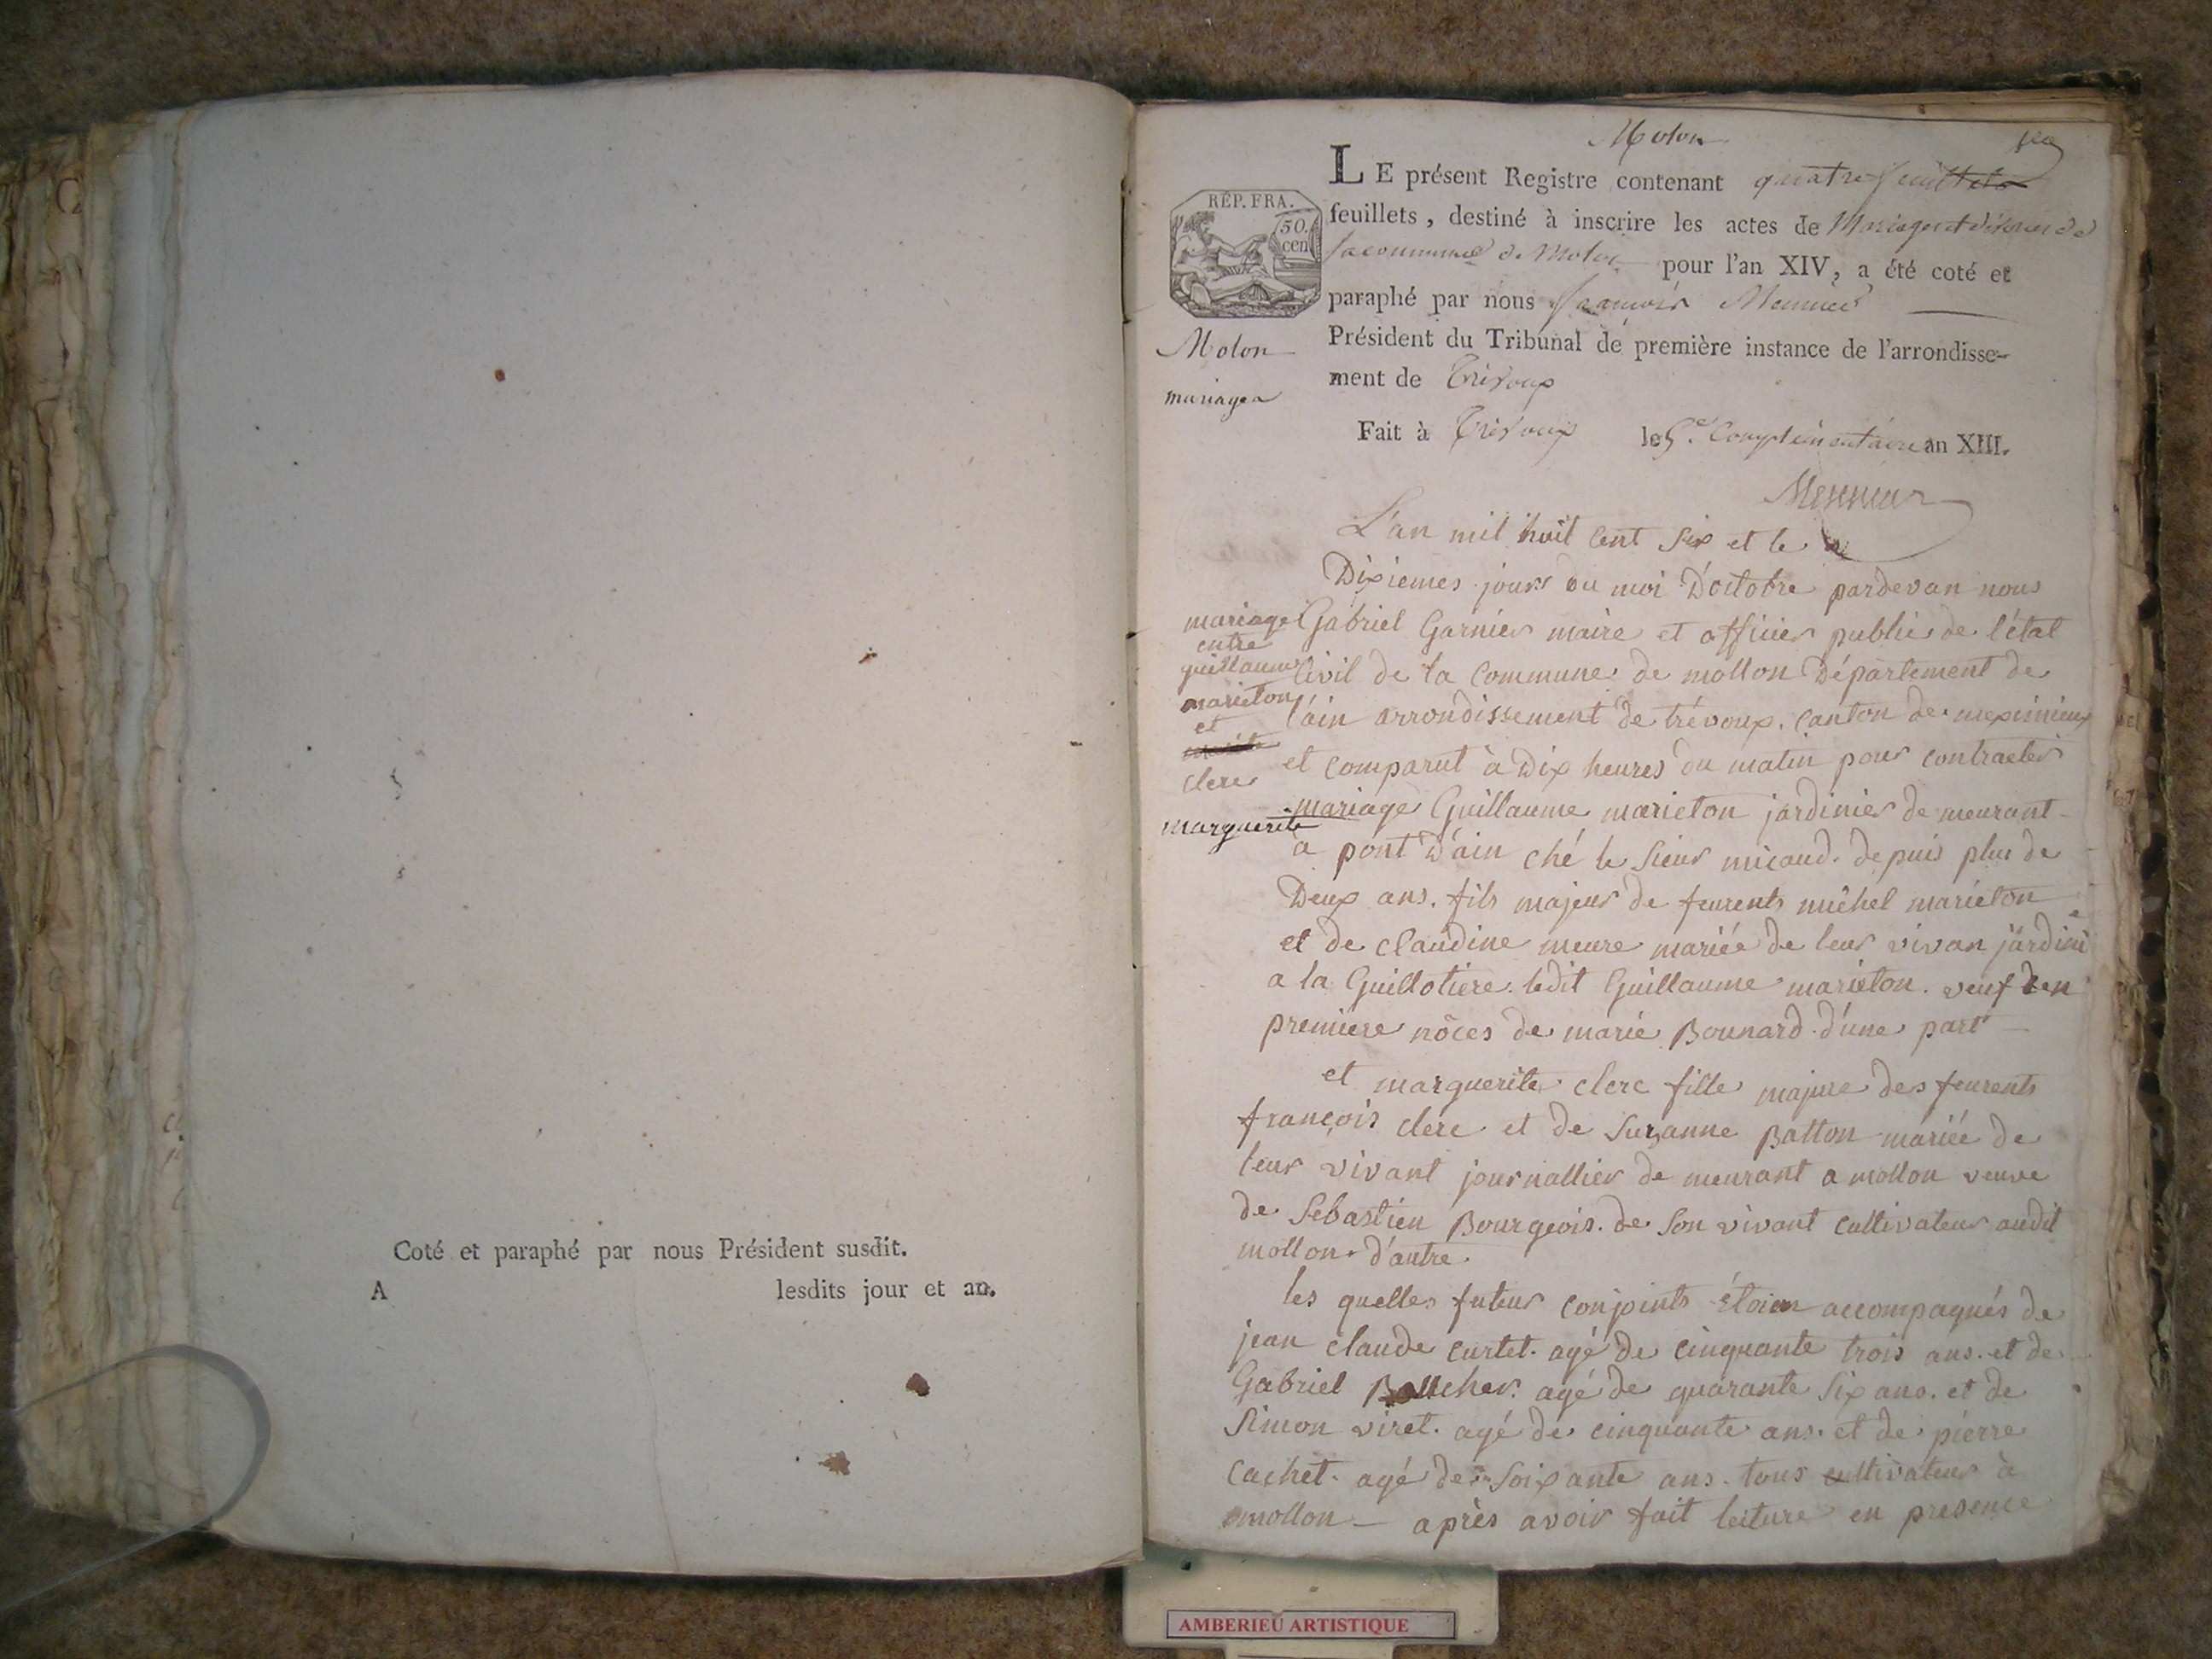 Coté et paraphé par nous Président susdit.
A lesdits jour et an.
Molon
LE présent Registre contenant quatre feuillets
feuillets, destiné à inscrire les actes de Mariages et
la commune de Molon pour l'an XIV, a été coté et
paraphé par nous françois Meunier
Président du Tribunal de première instance de l'arrondisse-
ment de Trévoux
Fait à Trévoux le 5e Complémentaire an XIII.
Meunier
RÉP. FRA.
50.
cen
Molon
mariages
mariage
entre
guillaume
marieton
et
clere
marguerite
L'an mil huit cent six et le
Dixiemes jours du moi D'octobre pardevan nous
Gabriel Garnier maire et officier publie de l'état
Civil de la Commune de mollon Département de
l'ain arrondissement de trévoux. canton de meximieux
et comparut à Dix heures du matin pour contracter
mariage Guillaume marieton jardinier de meurant
a pont D'ain ché le sieur micaud. depuis plus de
Deux ans. fils majeur de feurents michel marieton
et de claudine meure mariée de leur vivan jardinie
a la Guillotiere. ledit Guillaume marieton. veuf den
premiere nôces de marie Bounard. d'une part
et marguerite clerc fille majure des feurents
françois clerc et de Suzanne Batton mariée de
leur vivant journallier de meurant a mollon veuve
de Sebastien Bourgeois. de Son vivant cultivateur audit
mollon. d'autre.
les quelles futeur conjoints étoien accompagnés de
jean claude curtet. agé de cinquante trois ans. et de
Gabriel agé de quarante six ans. et de
Simon viret. agé de cinquante ans. et de pierre
Cachet. agé de Soixante ans. tous cultivateur à
mollon — après avoir fait lecture en presence
AMBERIEU ARTISTIQUE